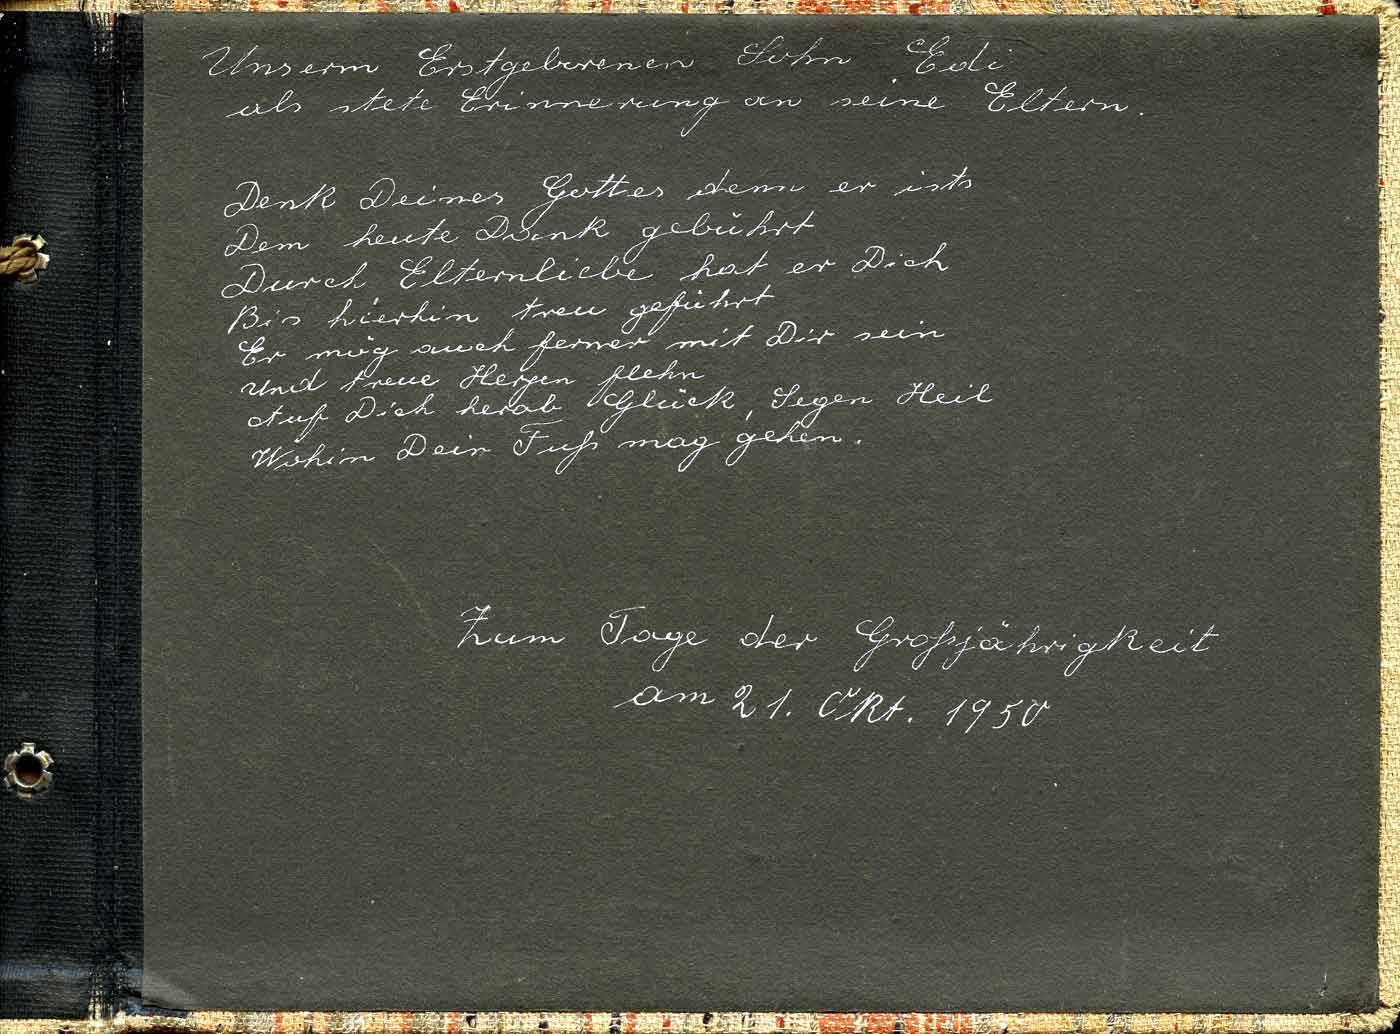 Unserm Erstgeborenen Sohn Edi
als stete Erinnerung an seine Eltern.
Denk Deines Gottes denn er ists
Dem heute Dank gebührt
Durch Elternliebe hat er Dich
Bis hierhin treu geführt
Er mög auch ferner mit Dir sein
und treue Herzen flehn
Auf Dich herab Glück, Segen Heil
Wohin Dein Fuß mag gehen.
Zum Tage der Großjährigkeit
am 21. Okt. 1950